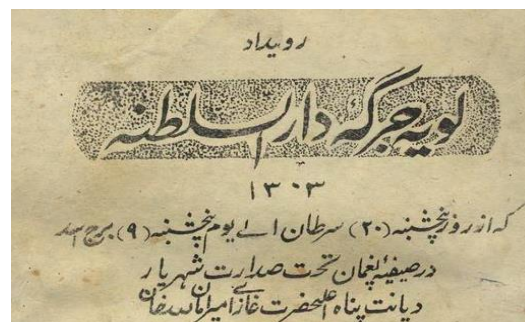 رویداد
لویه جرگهٔ دار السلطنه
۱۳۰۳
که از روز پنجشنبه (۲۰) سرطان الے یوم پنجشنبه (۹) برج اسد
در صیفیهٔ پغمان تحت صدارت شهریار
دیانت پناه اعلیحضرت غازے امیر امان الله خان